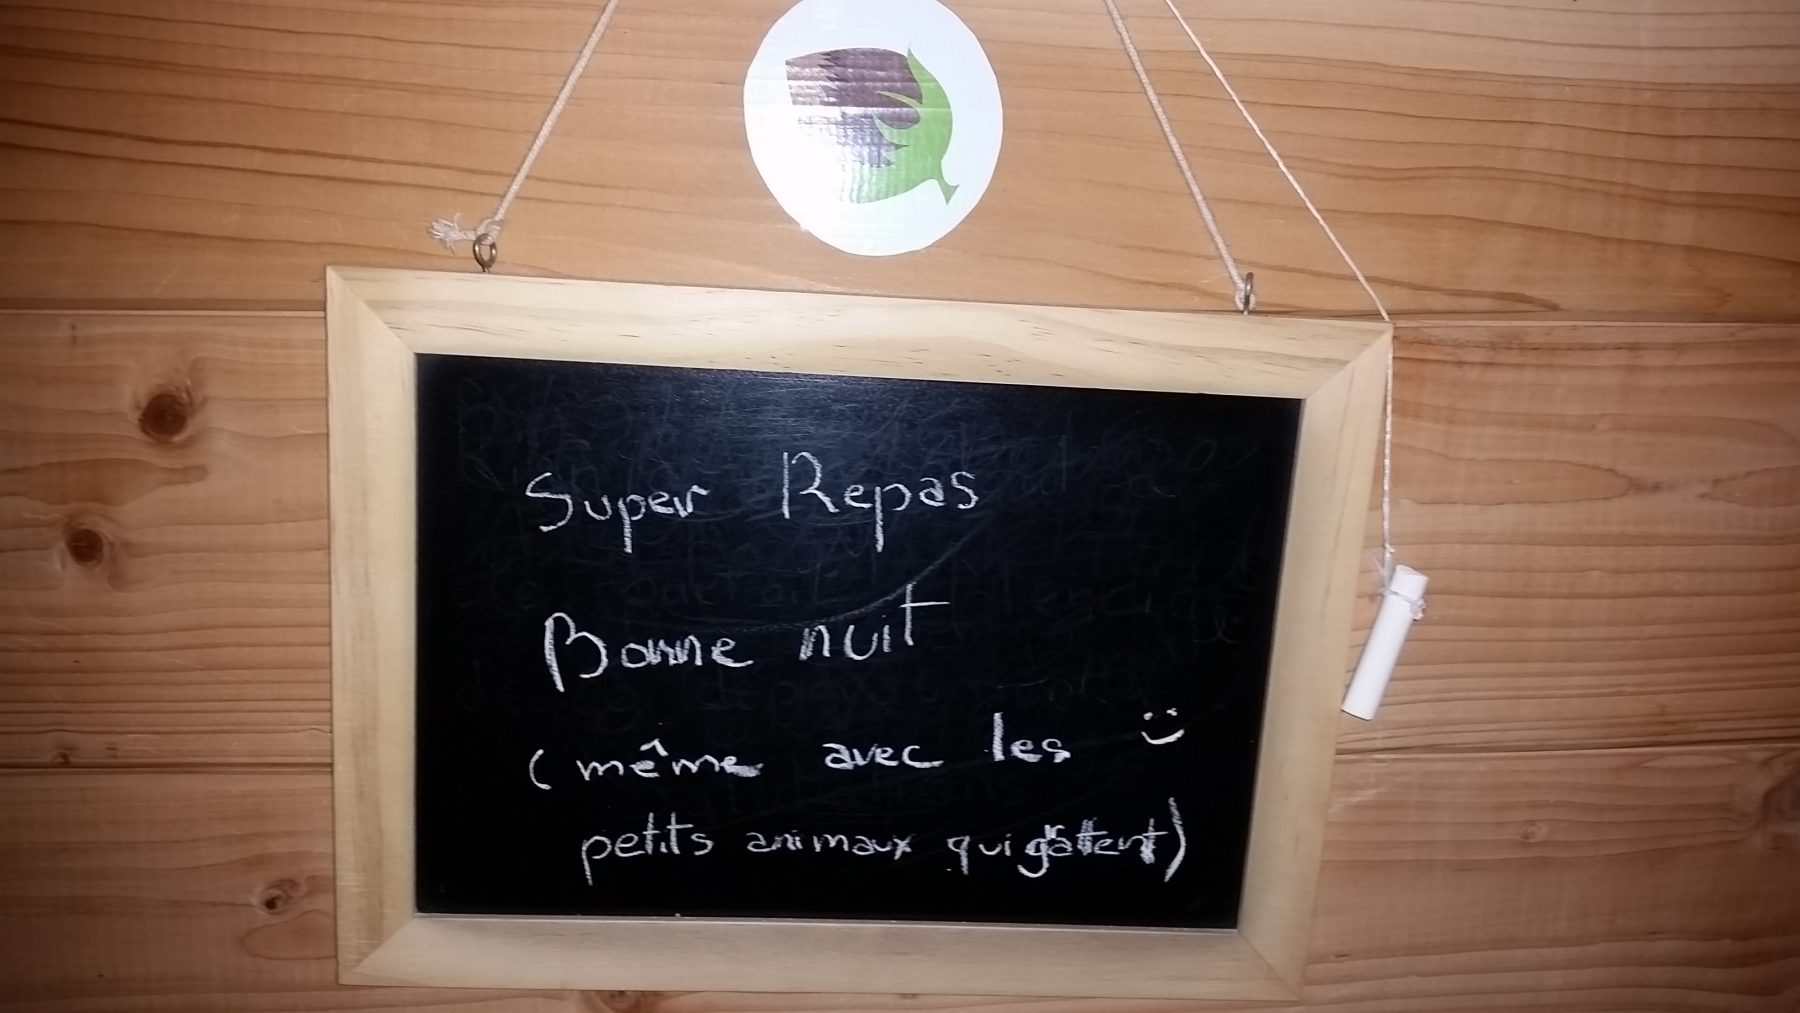 Super Repas
Bonne nuit
(même avec les :)
petits animaux qui grattent)